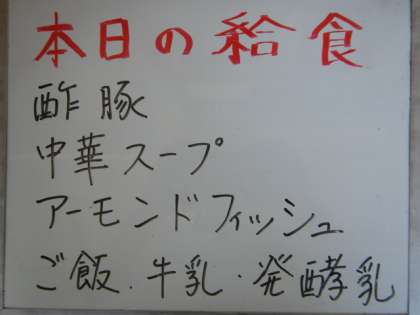 本日の給食
酢豚
中華スープ
アーモンドフィッシュ
ご飯.牛乳.発酵乳